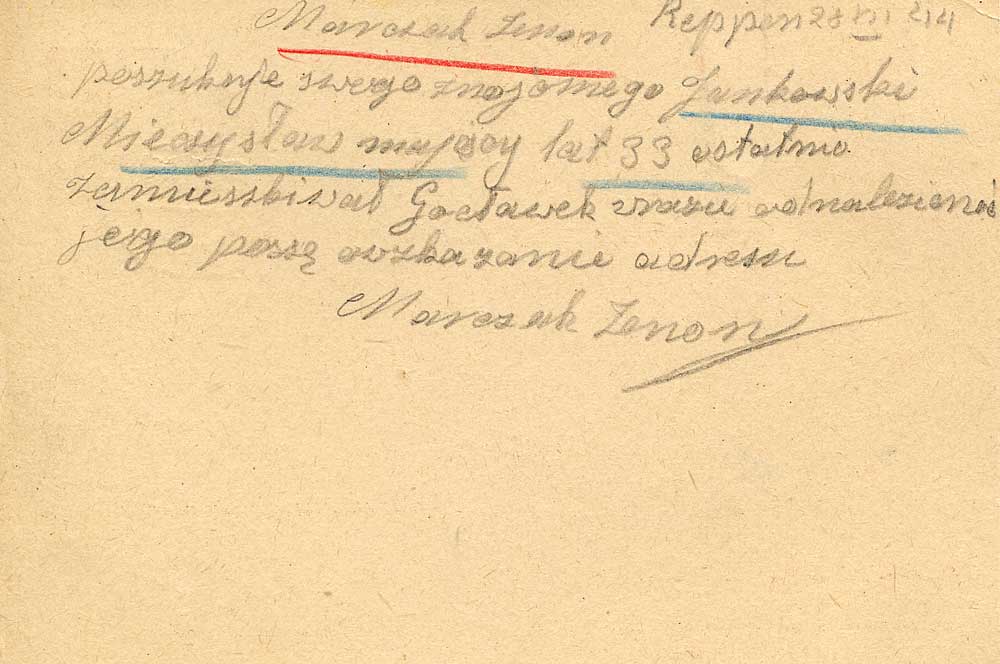 Marczak Zenon Reppen 28 XI 44
poszukuje swego znajomego Jankowski
Mieczysław mający lat 33 ostatnio
zamieszkiwał Gocławek wrazie odnalezienia
jego poszę owskazanie adresu
Marczak Zenon